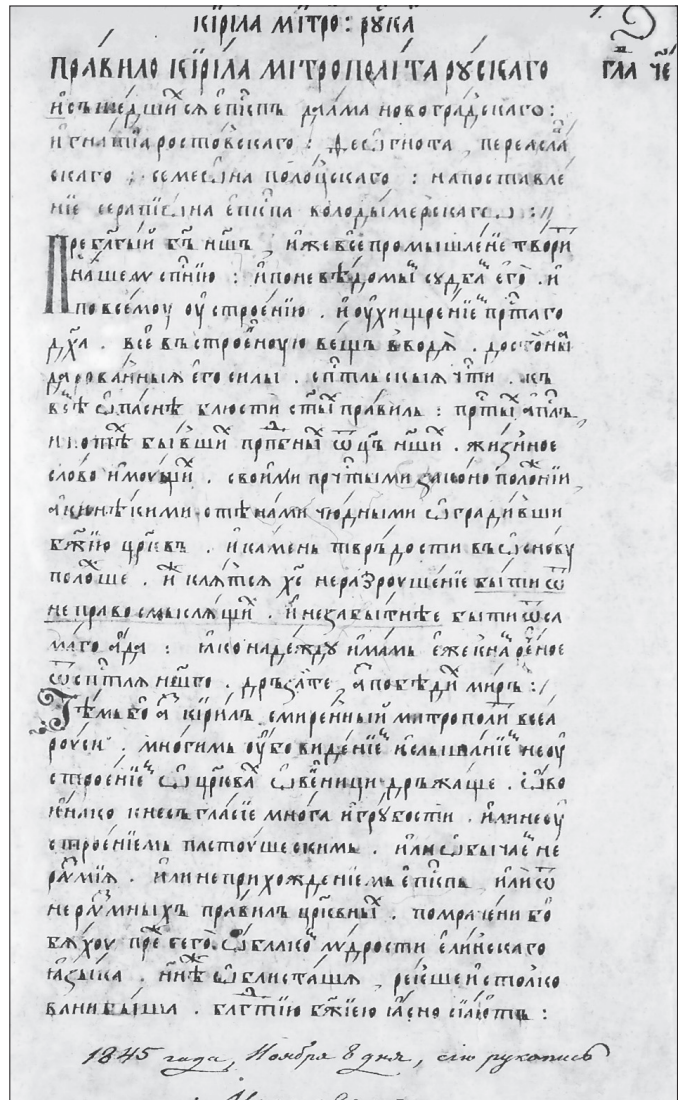 кѵ҆рі́ла мі́тро : рꙋ́ка
пра́вило кѵ҆рі́ла мі́трополі́та рꙋ́скаго гла҃ че҃
и҆съшедши́сѧ е҆п҃кпъ далма новогра́дскаго :
и҆гна́тїа росто́вскаго : ѳеѡ́гноста , переꙗсла́
скаго : семеѡ́на поло́цскаго : на поставле́
нїе серапїѡ́на е҆п҃кпа володы́мерскагѡ ://
Пребл҃гі́й бг҃ъ нш҃ъ , и҆́же всѐ промышле́нїе твори́т
на́шемꙋ сп҃нїю : и҆ поневѣ́домы сꙋдба́ е҆гѡ̀ . и҆
по все́моу оу҆строе́нїю . и҆ оу҆хищре́нїе пр҃ста́го
дх҃а . всѐ въ строе́ноую ве́щь вводѧ̀ . досто́ны
дарова́нныѧ е҆го̀ си́лы . ст҃льскыѧ чт҃и . къ
всѣ̀ ѡ҆па́снѣ блюстѝ ст҃ы пра́вилъ : пр҃сты́ а҆пл҃ъ ,
и҆ потѣ́ бы́вши прп҃бны ѿц҃ъ нш҃и . жи́зньное
сло́во и҆моу́щи . свои́ми пр҃чтыми зако́но положе́нїи ,
а҆́ки нѣ́кими стѣ́нами чю́дными ѡ҆гради́вши
бж҃їю цр҃квъ . и҆ ка́мень твръ́дости въ ѡ҆снову
поло́жше . и҆ клѧ́тсѧ хс҃ неразроуше́нїе бы́ти ѿ
неправосмы́слѧщи . и҆ незабы́тнѣе бы́ти ѿ са
маго а҆́да : ꙗ҆́ко наде́ждꙋ и҆́мамь е҆́же є҆ѵⷩ҇ рече́ное
ѿ сп҃тлѧ нш҃го . дръза́йте , а҆́зъ побѣди́ ми́ръ :/
Тѣ́мъ бо а҆́зъ кѵ҆ри́лъ , смире́нный митрополи́ всеа̀
роу́си . мно́гимь оу҆́бо ви́дѣнїе и҆ слы́шанїе неоу҆
строе́нїе ѡ҆ цр҃ква ѡ҆ве́ници дръжа́ще . ѡ҆́во
и҆ ꙗ҆́ко к несъгла́сїе мно́га и҆ гру́бости . и҆лѝ неоу҆
строе́нїемь пасту́шескимь . и҆лѝ ѡ҆бы́чае не
ра́зꙋмїѧ . и҆лѝ неприхожде́нїемъ е҆п҃кпъ и҆лѝ ѿ
нера́зꙋмныхъ пра́вилъ цр҃кѡвны . помраче́ни бо̀
бѧ́хоу пре́ сегѡ̀ . ѡ҆́блако мꙋ́дрости е҆́линскаго
ꙗ҆зы́ка . нн҃ѣ ѡ҆блиста́шѧ , ре́кше и҆столко
вани бы́ша . блг҃тїю бж҃їею ꙗ҆́сно сїѧ́ють :
1845 года, Ноября 8 дня, сію рукопись